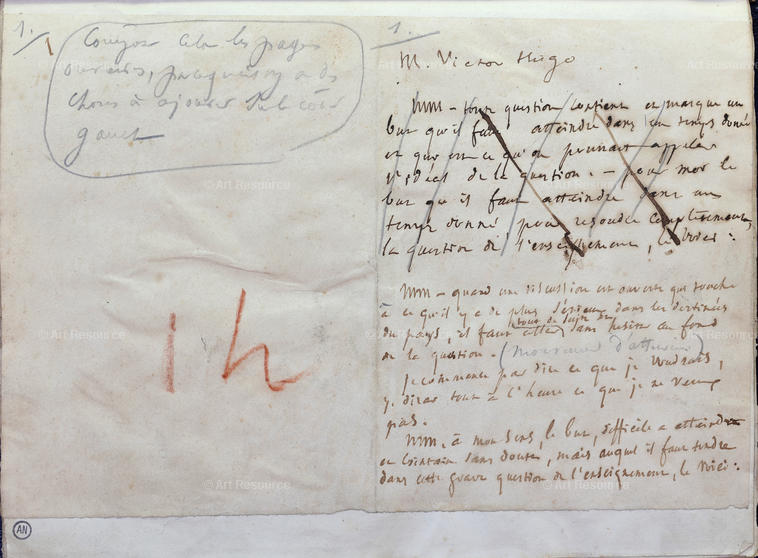 1.
Composer cela les pages
ouvertes, parcequ'il y a des
choses à ajouter sur le côté
gauche
1 h
1.
M. Victor Hugo
MM – toute question contient et marque un
but qu'il faut atteindre dans un temps donné
et qui est ce qu'on pourrait appeler
l'idéal de la question. – pour moi le
but qu'il faut atteindre dans un
temps donné pour résoudre complètement,
la question de l'enseignement, le voici :
MM – quand une discussion est ouverte qui touche
à ce qu'il y a de plus sérieux dans les destinées
du pays, il faut aller tout de suite et sans hésiter au fond
de la question. (mouvement d'attention)
je commence par dire ce que je voudrais,
je dirai tout à l'heure ce que je ne veux
pas.
MM, à mon sens, le but, difficile à atteindre
et lointain sans doute, mais auquel il faut tendre
dans cette grave question de l'enseignement, le voici :
AN
© Art Resource
© Art Resource
© Art Resource
© Art Resource
© Art Resource
© Art Resource
© Art Resource
© Art Resource